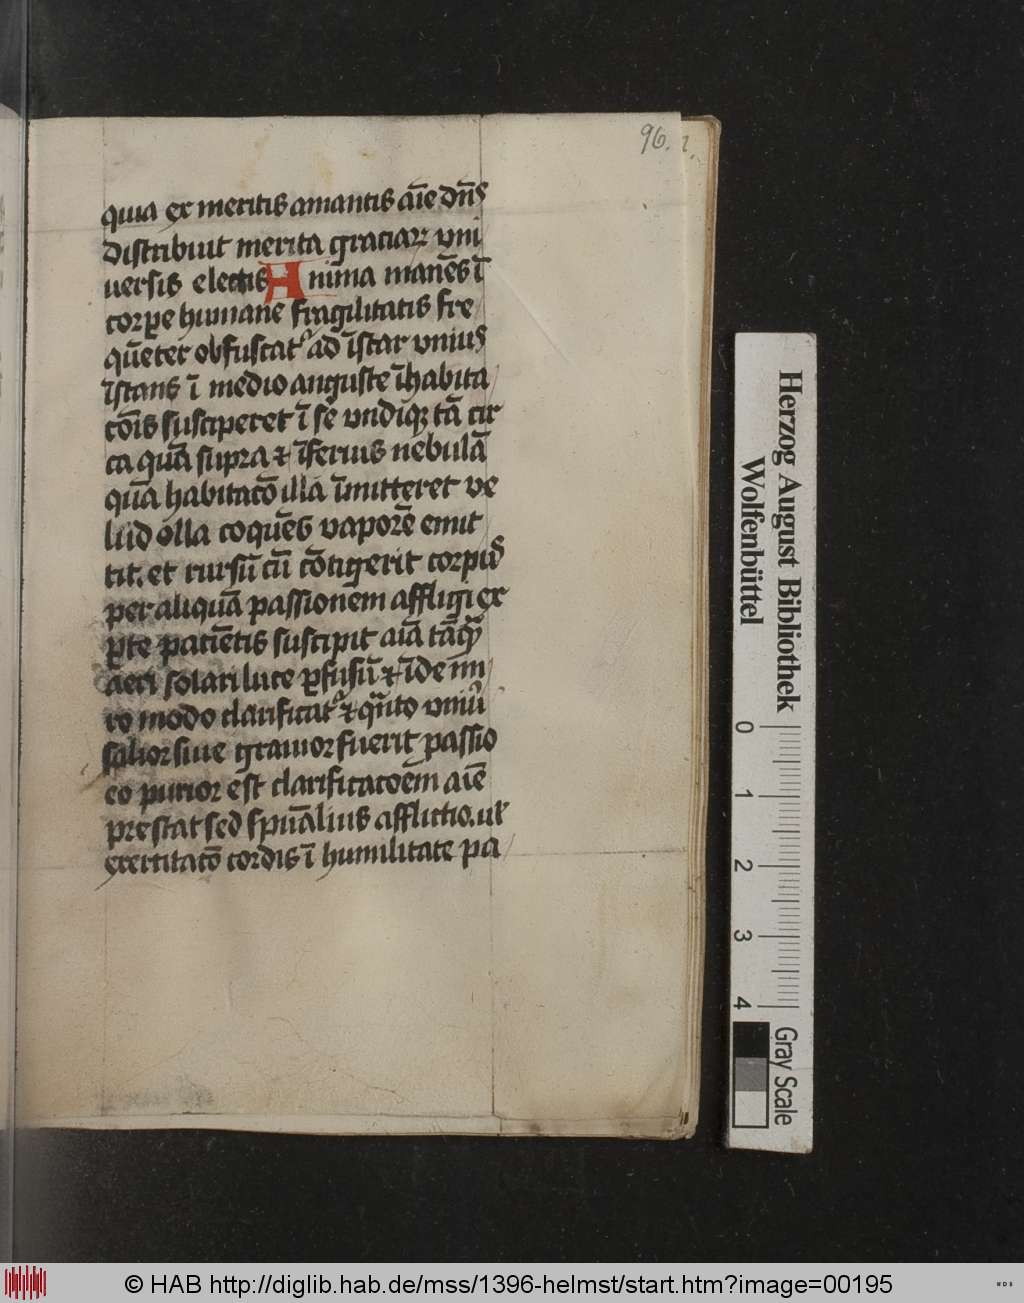 96.
quia ex meritis amantis aīe dn̄s
distribuit merita graciaꝝ vni
uersis electis Anima manēs ī
corꝑe humane fragilitatis fre
qūeter obfuscatᷣ ad īstar vniꝰ
īstans ī medio anguste īhabita
cōis susciperet ī se vndiqꝫ tā cir
ca quā supra ⁊ īferius nebulā
quā habitacō illā īmitteret ve
lud olla coquēs vaporē emit
tit. et rursū cū cōtigerit corpꝰ
per aliquā passionem affligi ex
ꝑte pacīetis suscipit aīā tāqᷓ
aeri solari luce ꝑfusū ⁊ īde mi
ro modo clarificatᷣ ⁊ qᷓnto
siue grauior fuerit passio
eo purior est clarificacōem aīe
prestat sed spūalius afflictio. ul̄
exercitacō cordis ī humilitate pa
Herzog August Bibliothek
Wolfenbüttel
0 1 2 3 4
Gray Scale
© HAB http://diglib.hab.de/mss/1396-helmst/start.htm?image=00195
WDB